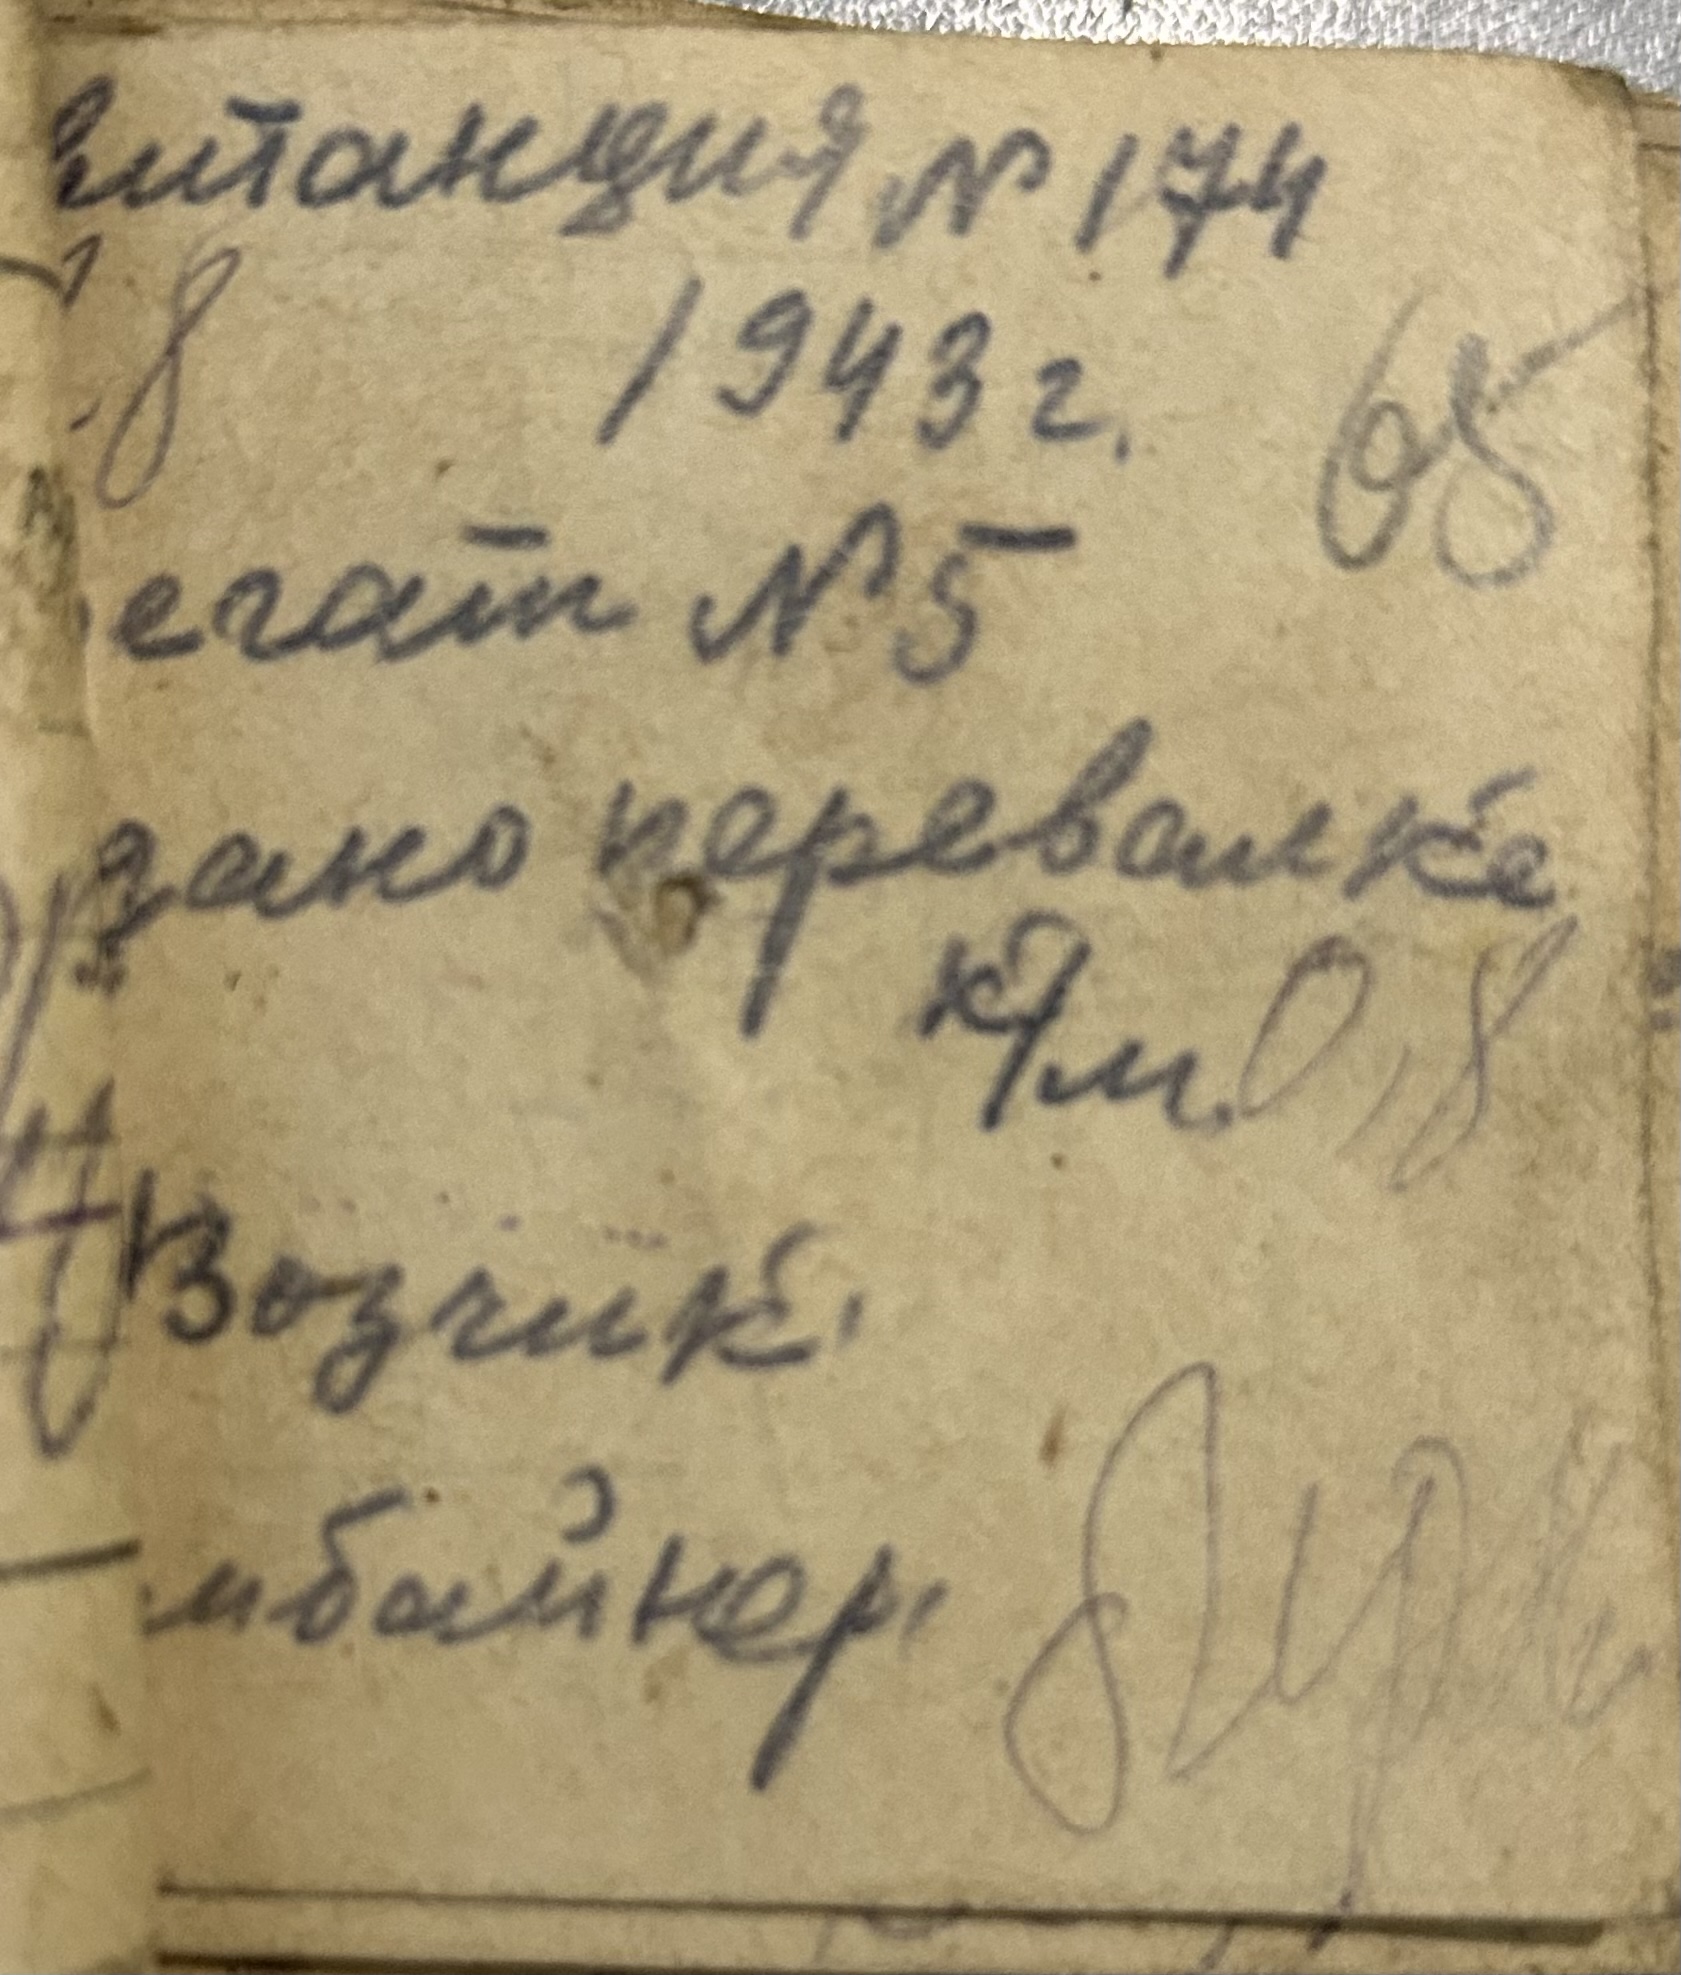 витанция № 174
8 1943 г.
65
егат № 5
зано перевалке
к/м. 0,8
Возчик.
мбайнер.